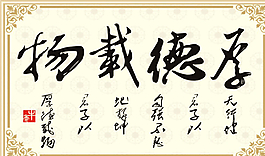 厚德載物
天行健
君子以
自強不息
地勢坤
君子以
厚德載物